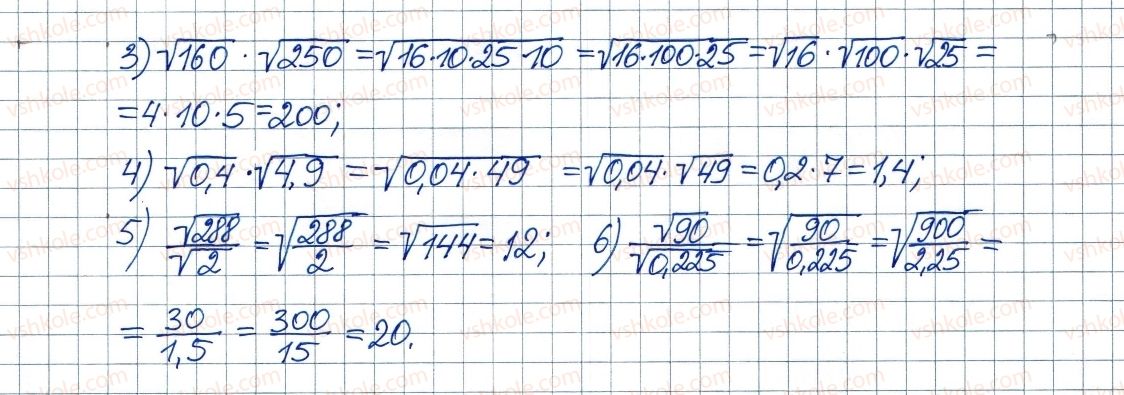 3) √160 · √250 = √16·10·25·10 = √16·100·25 = √16 · √100 · √25 =
= 4·10·5 = 200;
4) √0,4 · √4,9 = √0,04·49 = √0,04 · √49 = 0,2·7 = 1,4;
5) √288/√2 = √(288/2) = √144 = 12; 6) √90/√0,225 = √(90/0,225) = √(900/2,25) =
= 30/1,5 = 300/15 = 20.